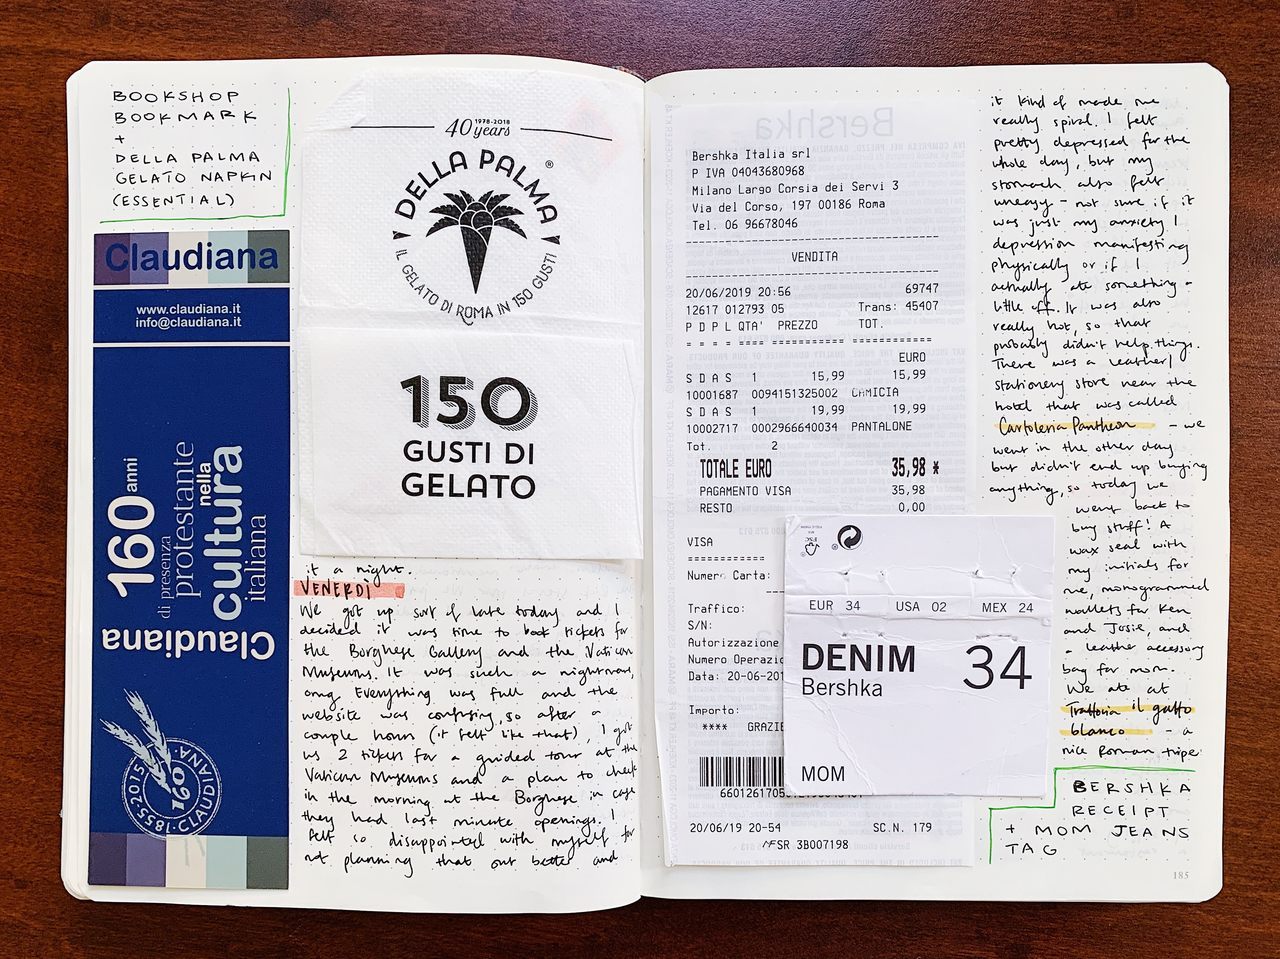 BOOKSHOP
BOOKMARK
+
DELLA PALMA
GELATO NAPKIN
(ESSENTIAL)
Claudiana
www.claudiana.it
info@claudiana.it
160 anni
di presenza
protestante
nella
cultura
italiana
Claudiana
1855-2015
160
CLAUDIANA
1978-2018
40 years
DELLA PALMA®
IL GELATO DI ROMA IN 150 GUSTI
150
GUSTI DI
GELATO
it a night.
VENERDÌ
We got up sort of late today and I
decided it was time to book tickets for
the Borghese Gallery and the Vatican
Museums. It was such a nightmare,
omg. Everything was full and the
website was confusing, so after a
couple hours (it felt like that), I got
us 2 tickets for a guided tour at the
Vatican Museums and a plan to check
in the morning at the Borghese in case
they had last minute openings. I
felt so disappointed with myself for
not planning that out better and
Bershka
Bershka Italia srl
P IVA 04043680968
Milano Largo Corsia dei Servi 3
Via del Corso, 197 00186 Roma
Tel. 06 96678046
VENDITA
20/06/2019 20:56 69747
12617 012793 05 Trans: 45407
P D P L QTA' PREZZO TOT.
EURO
S D A S 1 15,99 15,99
10001687 0094151325002 CAMICIA
S D A S 1 19,99 19,99
10002717 0002966640034 PANTALONE
Tot. 2
TOTALE EURO 35,98 *
PAGAMENTO VISA 35,98
RESTO 0,00
VISA
Numero Carta:
Traffico:
S/N:
Autorizzazione
Numero Operazio
Data: 20-06-201
Importo:
**** GRAZIE
20/06/19 20-54 SC.N. 179
SR 3B007198
FSC
EUR 34 USA 02 MEX 24
DENIM 34
Bershka
MOM
it kind of made me
really spiral. I felt
pretty depressed for the
whole day, but my
stomach also felt
uneasy - not sure if it
was just my anxiety/
depression manifesting
physically or if I
actually ate something
little off. It was also
really hot, so that
probably didn't help things.
There was a leather/
stationery store near the
hotel that was called
Cartoleria Pantheon - we
went in the other day
but didn't end up buying
anything, so today we
went back to
buy stuff! A
wax seal with
my initials for
me, monogrammed
wallets for Ken
and Josie, and
a leather accessory
bag for mom.
We ate at
Trattoria il gatto
bianco - a
nice Roman tripe
BERSHKA
RECEIPT
+ MOM JEANS
TAG
185